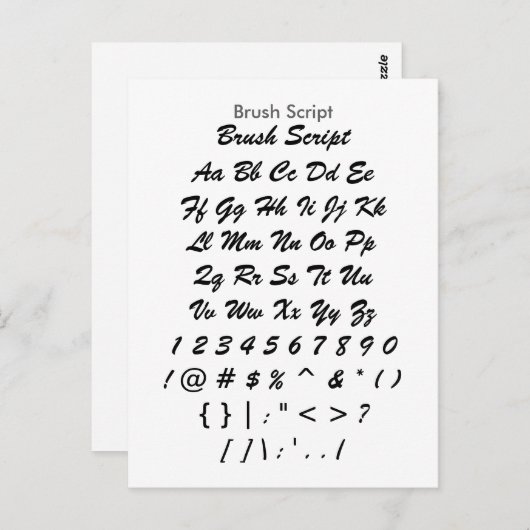 Brush Script
Brush Script
Aa Bb Cc Dd Ee
Ff Gg Hh Ii Jj Kk
Ll Mm Nn Oo Pp
Qq Rr Ss Tt Uu
Vv Ww Xx Yy Zz
1 2 3 4 5 6 7 8 9 0
! @ # $ % ^ & * ( )
{ } | : " < > ?
[ ] \ ; ' , . /